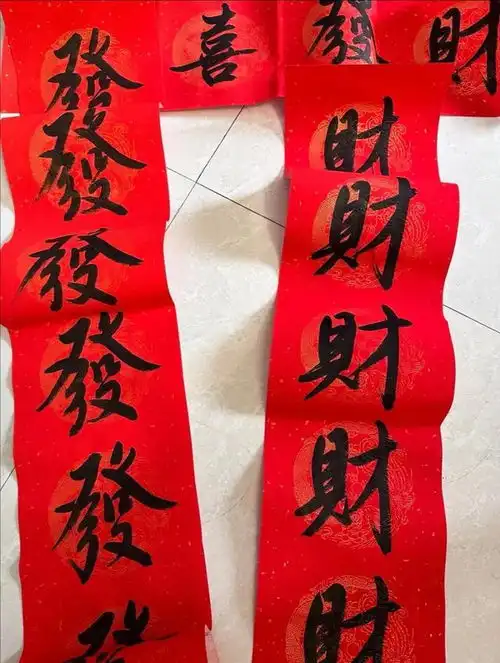 發 喜 發 財
發發發發發
財財財財財